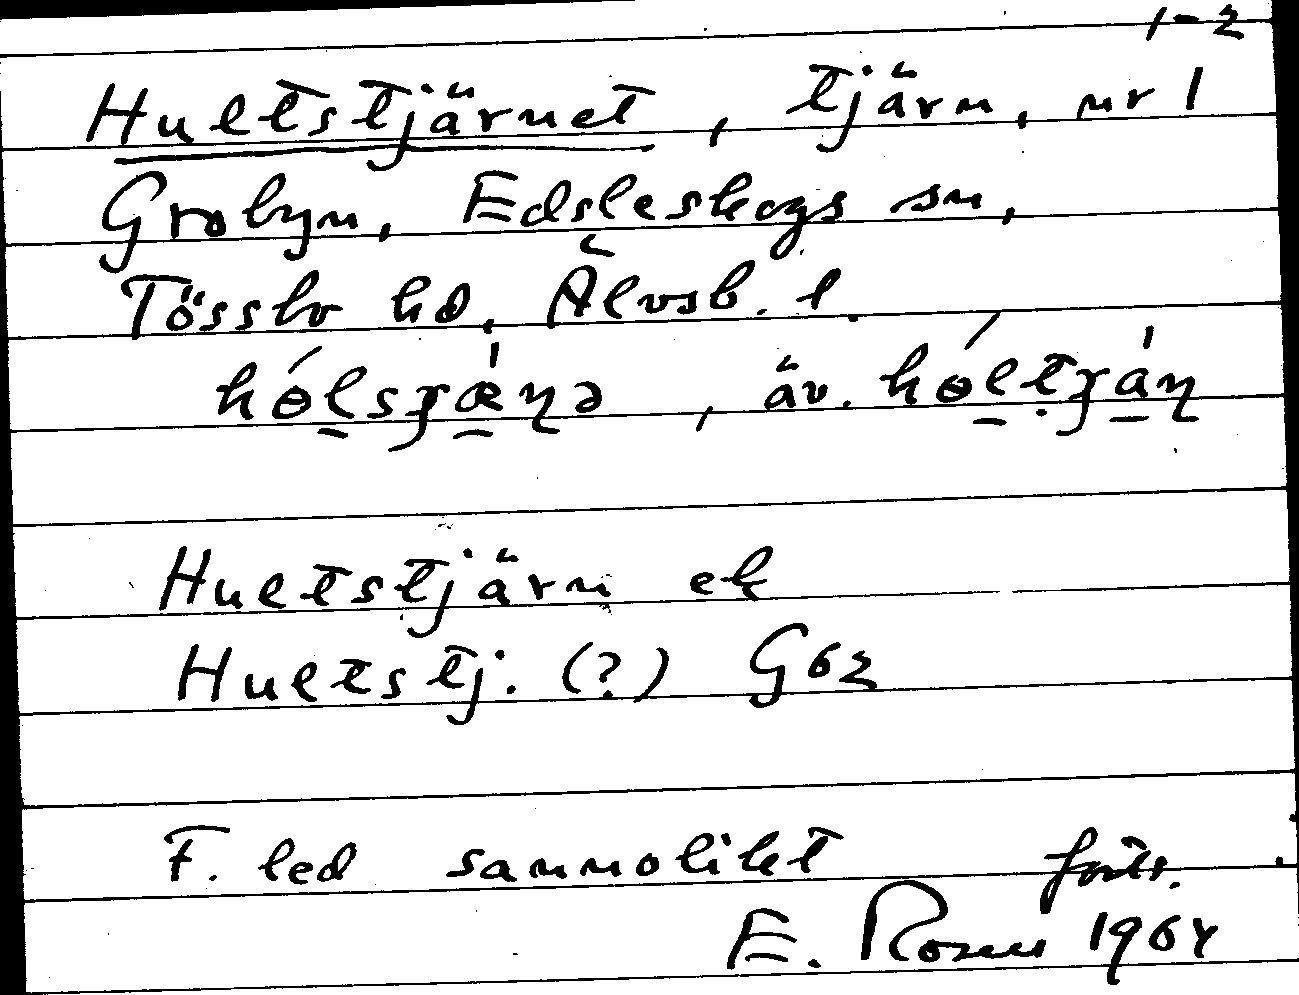 1-2
Hultstjärnet, tjärn, nr 1
Grobyn, Edsleskogs sn,
Tössbo hd, Älvsb. l.
hólsʂæ̀ɳə, äv. hóltʂáɳ
Hultstjärn ek
Hultstj. (?) G62
F. led sannolikt forts.
E. 1964